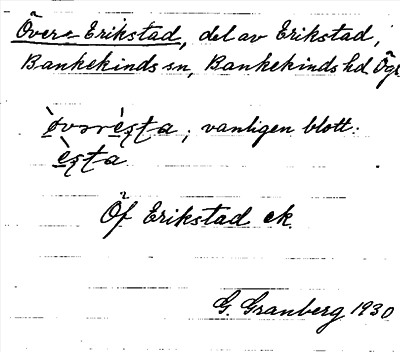 Övre Erikstad, del av Erikstad,
Bankekinds sn, Bankekinds hd Ögl
òvərèsta; vanligen blott:
èsta
Öf Erikstad ek.
G. Granberg 1930